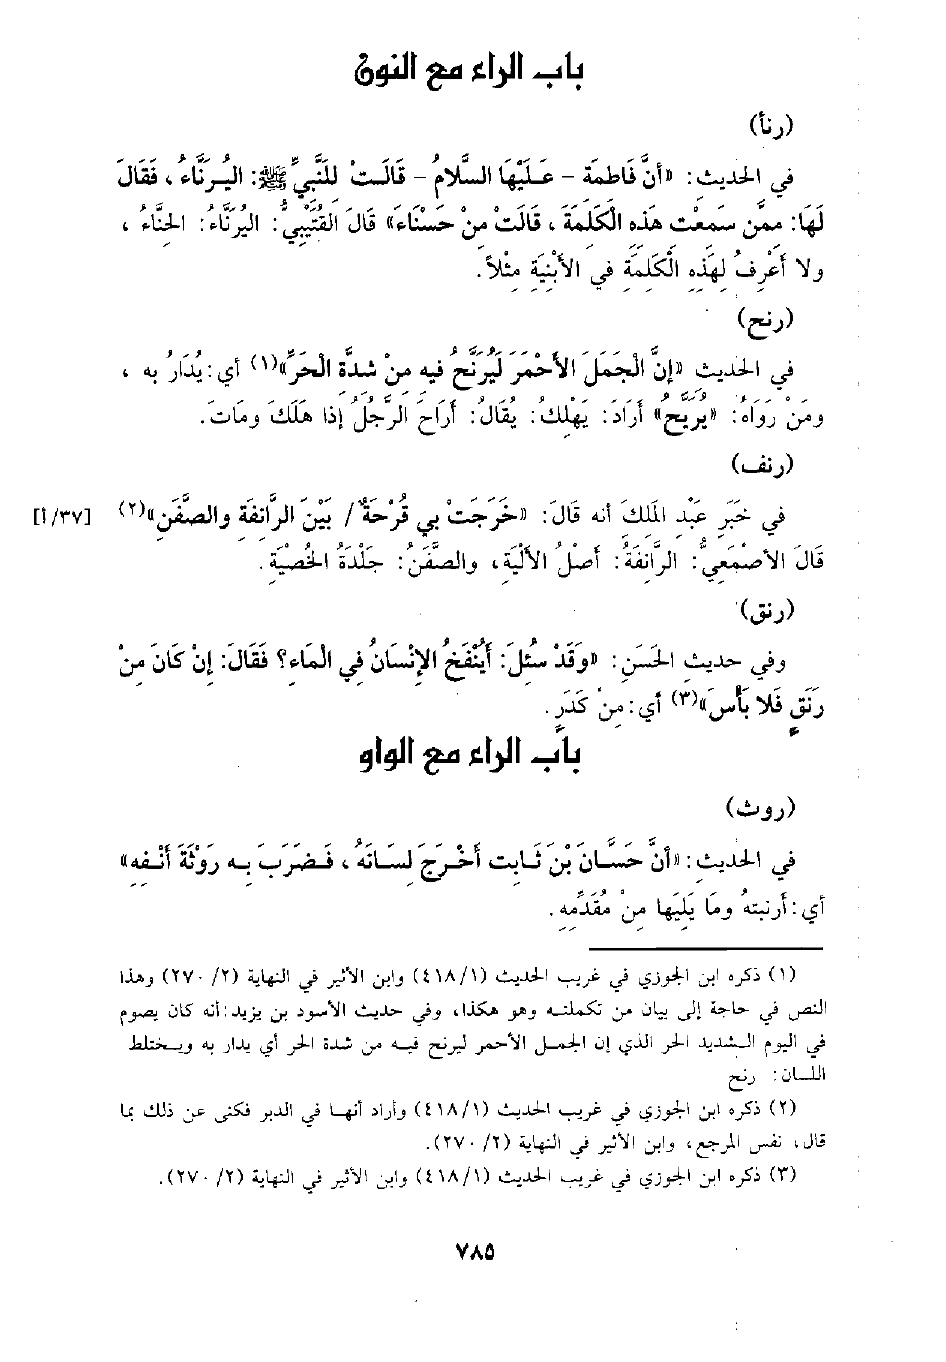 باب الراء مع النون
(رنأ)
في الحديث: «أنَّ فَاطمةَ - عَلَيْهَا السَّلَامُ - قَالَتْ للنَّبيِّ ﷺ: اليُرَنَّاءُ، فَقَالَ
لَهَا: ممَّن سَمعْت هَذه الْكَلمَةَ، قَالَتْ منْ حَسْنَاءَ» قَالَ القُتَيْبِيُّ: اليُرَنَّاءُ: الحِنَّاءُ،
ولا أَعْرِفُ لِهَذِهِ الْكَلِمَةِ فِي الأَبْنِيَةِ مِثْلاً.
(رنح)
في الحَديث «إنَّ الْجَمَلَ الأَحْمَرَ لَيُرَنَّحُ فيه منْ شدَّة الْحَرِّ»(١) أي: يُدَارُ به،
ومَنْ رَوَاهُ: «يُريَّحُ» أَرَادَ: يَهْلِكُ: يُقَالُ: أَرَاحَ الرَّجُلُ إذا هَلَكَ ومَاتَ.
(رنف)
في خَبَرِ عَبْدِ المَلِكَ أنه قَالَ: «خَرَجَتْ بي قُرْحَةٌ / بَيْنَ الرَّانِفَةِ والصَّفَنِ»(٢) [٣٧/أ]
قَالَ الأصْمَعِيُّ: الرَّانفَةُ: أصْلُ الأَلْيَةِ، والصَّفَنُ: جِلْدَةُ الخُصْيَةِ.
(رنق)
وفي حديث الحَسَنِ: «وَقَدْ سُئلَ: أَيَنْفُخُ الإنْسَانُ في الْمَاءِ؟ فَقَالَ: إنْ كَانَ مِنْ
رَنَقٍ فَلا بَأْسَ»(٣) أي: مِنْ كَدَرٍ.
باب الراء مع الواو
(روث)
في الحديث: «أنَّ حَسَّانَ بْنَ ثَابت أخْرَجَ لسَانَهُ، فَضَرَبَ به رَوْثَةَ أنْفه»
أي: أرنبتهُ ومَا يَلِيَها مِنْ مُقَدِّمِهِ.
(١) ذكره ابن الجوزي في غريب الحديث (٤١٨/١) وابن الأثير في النهاية (٢٧٠/٢) وهذا
النص في حاجة إلى بيان من تكملته وهو هكذا، وفي حديث الأسود بن يزيد: أنه كان يصوم
في اليوم الشديد الحر الذي إن الجمل الأحمر ليرنح فيه من شدة الحر أي يدار به ويختلط
اللسان: رنح
(٢) ذكره ابن الجوزي في غريب الحديث (٤١٨/١) وأراد أنها في الدبر فكنى عن ذلك بما
قال، نفس المرجع، وابن الأثير في النهاية (٢٧٠/٢).
(٣) ذكره ابن الجوزي في غريب الحديث (٤١٨/١) وابن الأثير في النهاية (٢٧٠/٢).
٧٨٥